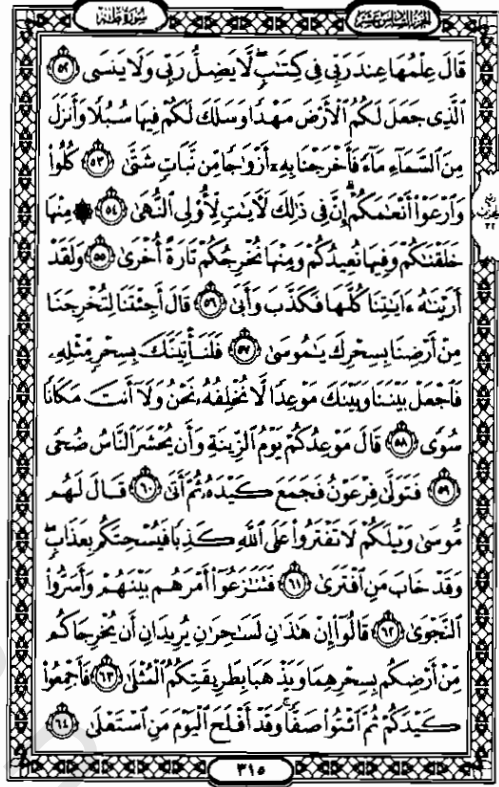 سُورَةُ طه
الجزء السادس عشر
قَالَ عِلْمُهَا عِندَ رَبِّى فِى كِتَٰبٍ ۖ لَّا يَضِلُّ رَبِّى وَلَا يَنسَى ٥٢
ٱلَّذِى جَعَلَ لَكُمُ ٱلْأَرْضَ مَهْدًا وَسَلَكَ لَكُمْ فِيهَا سُبُلًا وَأَنزَلَ
مِنَ ٱلسَّمَآءِ مَآءً فَأَخْرَجْنَا بِهِۦٓ أَزْوَٰجًا مِّن نَّبَاتٍ شَتَّىٰ ٥٣ كُلُوا۟
وَٱرْعَوْا۟ أَنْعَٰمَكُمْ ۗ إِنَّ فِى ذَٰلِكَ لَءَايَٰتٍ لِّأُو۟لِى ٱلنُّهَىٰ ٥٤ ۞ مِنْهَا
خَلَقْنَٰكُمْ وَفِيهَا نُعِيدُكُمْ وَمِنْهَا نُخْرِجُكُمْ تَارَةً أُخْرَىٰ ٥٥ وَلَقَدْ
أَرَيْنَٰهُ ءَايَٰتِنَا كُلَّهَا فَكَذَّبَ وَأَبَىٰ ٥٦ قَالَ أَجِئْتَنَا لِتُخْرِجَنَا
مِنْ أَرْضِنَا بِسِحْرِكَ يَٰمُوسَىٰ ٥٧ فَلَنَأْتِيَنَّكَ بِسِحْرٍ مِّثْلِهِۦ
فَٱجْعَلْ بَيْنَنَا وَبَيْنَكَ مَوْعِدًا لَّا نُخْلِفُهُۥ نَحْنُ وَلَآ أَنتَ مَكَانًا
سُوًى ٥٨ قَالَ مَوْعِدُكُمْ يَوْمُ ٱلزِّينَةِ وَأَن يُحْشَرَ ٱلنَّاسُ ضُحًى
٥٩ فَتَوَلَّىٰ فِرْعَوْنُ فَجَمَعَ كَيْدَهُۥ ثُمَّ أَتَىٰ ٦٠ قَالَ لَهُم
مُّوسَىٰ وَيْلَكُمْ لَا تَفْتَرُوا۟ عَلَى ٱللَّهِ كَذِبًا فَيُسْحِتَكُم بِعَذَابٍ ۖ
وَقَدْ خَابَ مَنِ ٱفْتَرَىٰ ٦١ فَتَنَٰزَعُوٓا۟ أَمْرَهُم بَيْنَهُمْ وَأَسَرُّوا۟
ٱلنَّجْوَىٰ ٦٢ قَالُوٓا۟ إِنْ هَٰذَٰنِ لَسَٰحِرَٰنِ يُرِيدَانِ أَن يُخْرِجَاكُم
مِّنْ أَرْضِكُم بِسِحْرِهِمَا وَيَذْهَبَا بِطَرِيقَتِكُمُ ٱلْمُثْلَىٰ ٦٣ فَأَجْمِعُوا۟
كَيْدَكُمْ ثُمَّ ٱئْتُوا۟ صَفًّا ۚ وَقَدْ أَفْلَحَ ٱلْيَوْمَ مَنِ ٱسْتَعْلَىٰ ٦٤
٣١٥